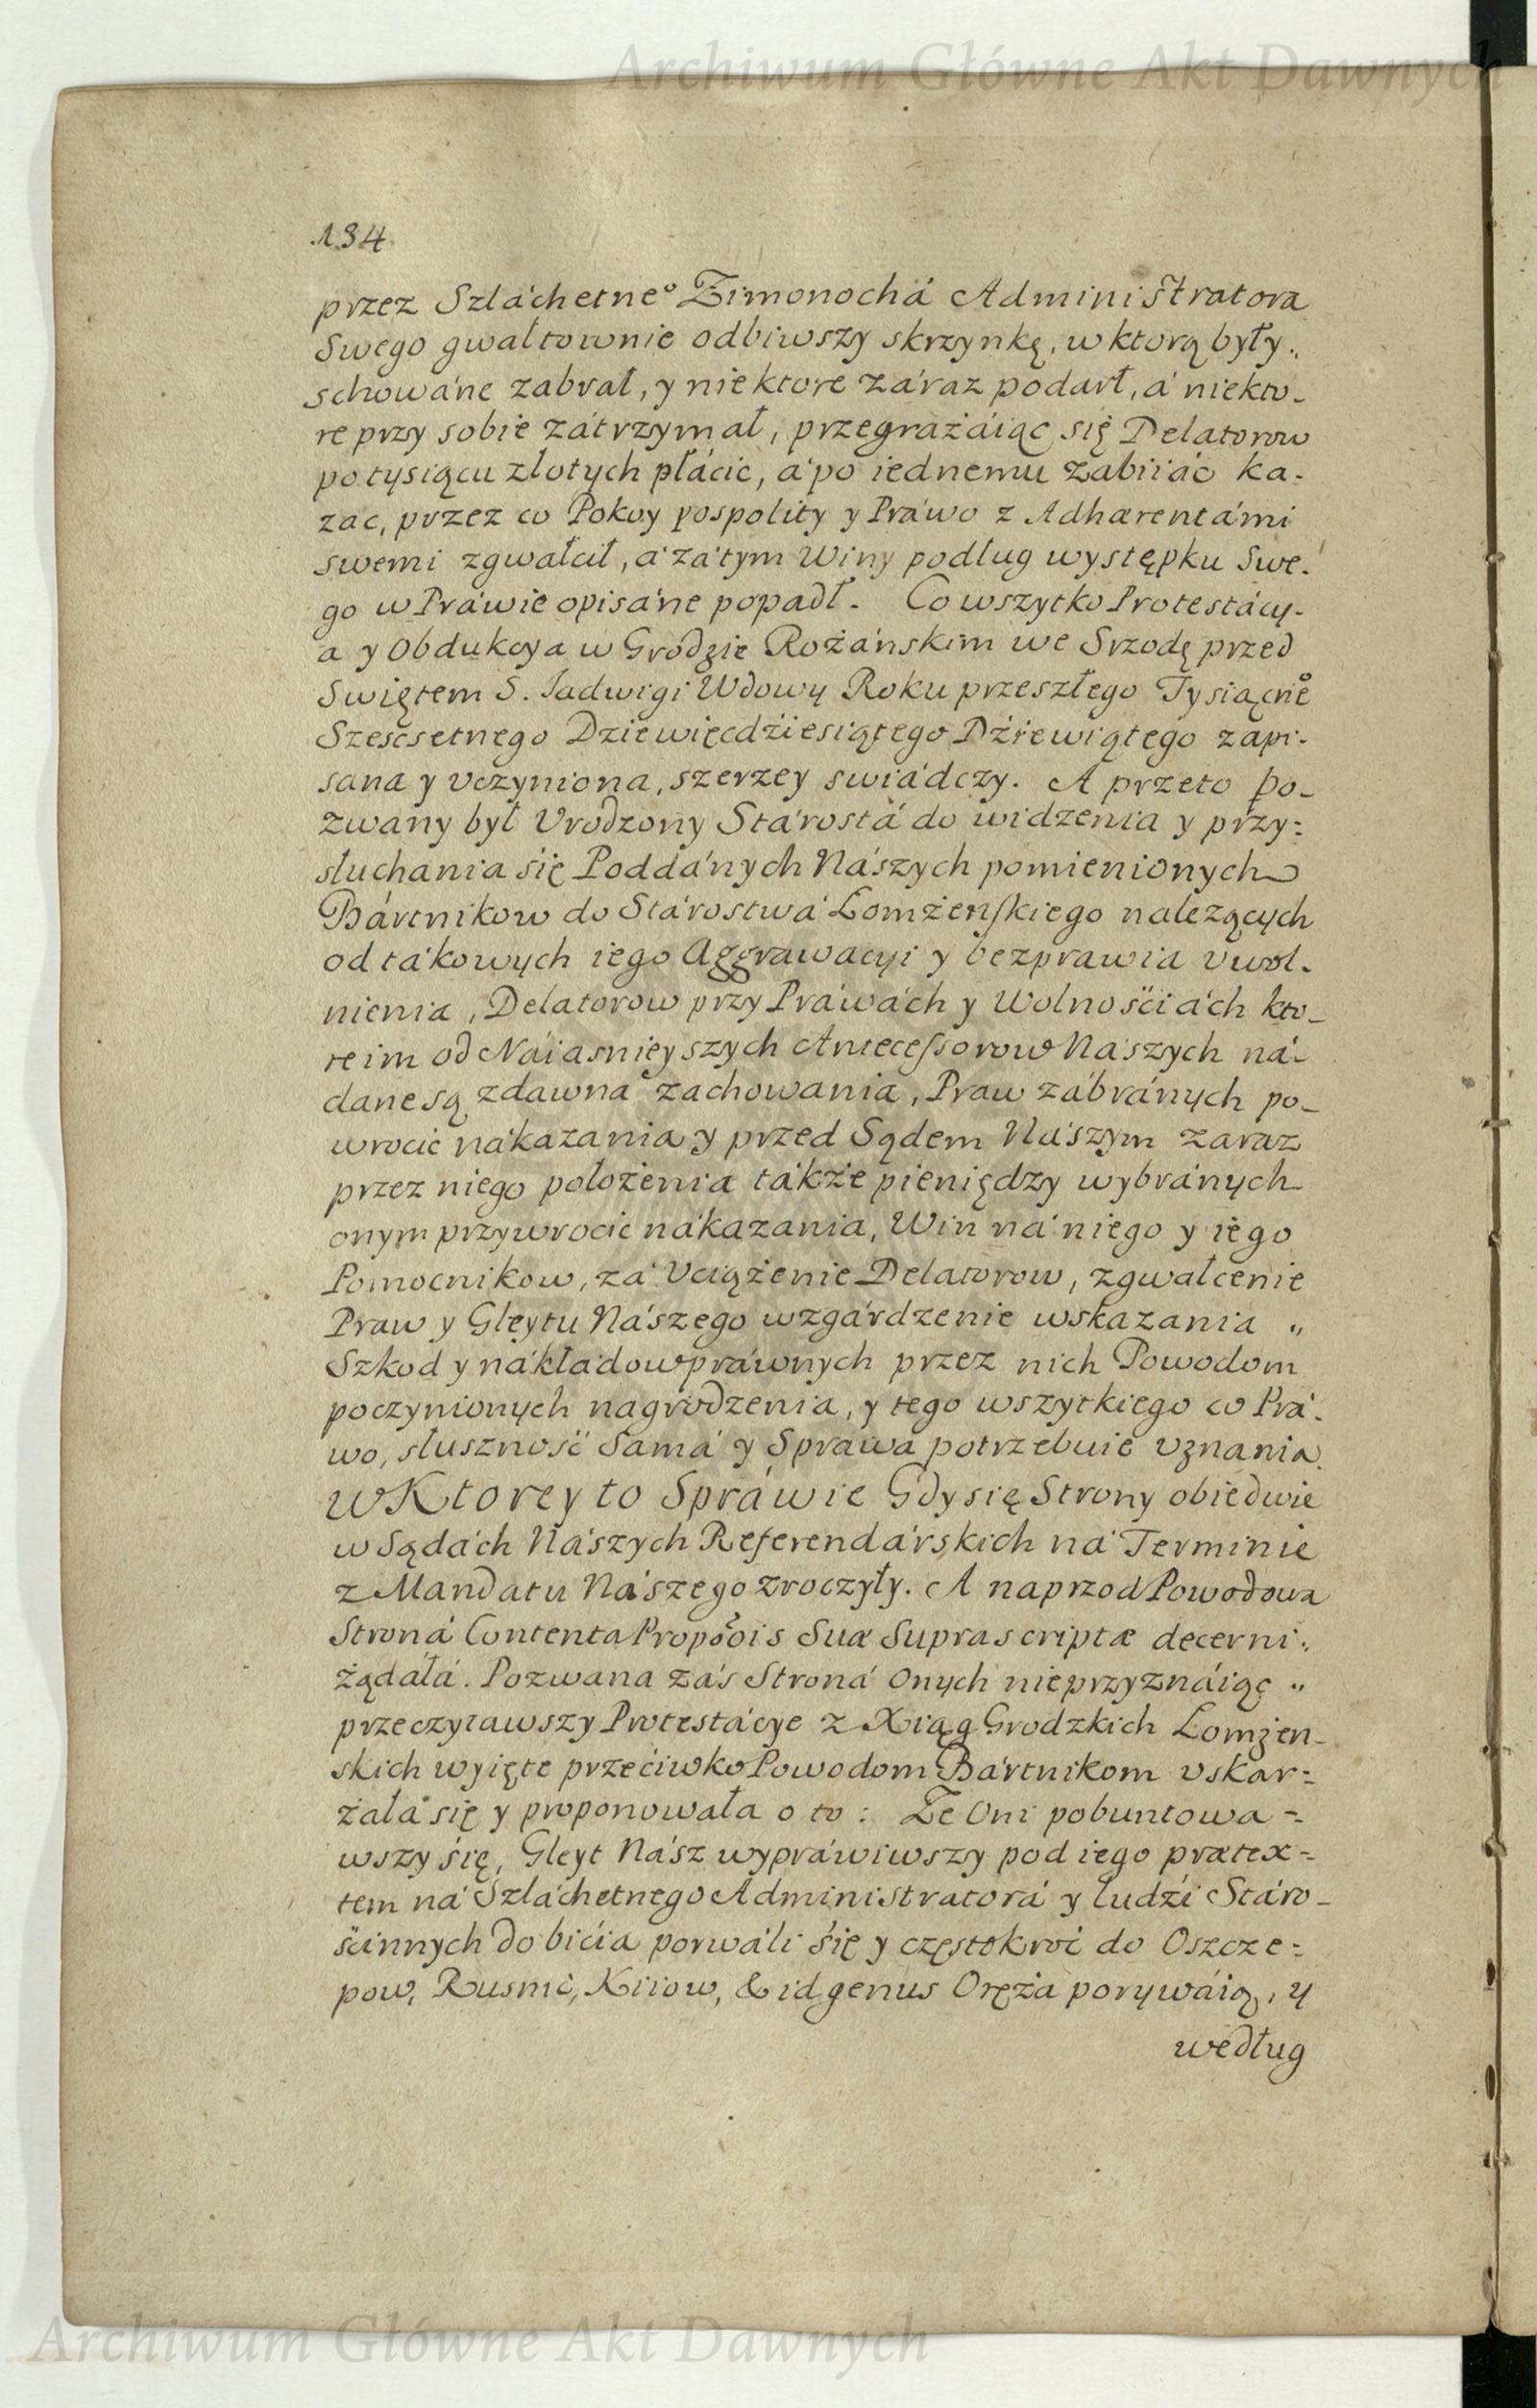 Archiwum Główne Akt Dawnych
134
przez Szláchetne° Zimonochá Administratora
Swego gwałtownie odbiwszy skrzynkę, w ktorą były„
schowáne zabrał, y niektore záraz podarł, á niekto-
re przy sobie zátrzymał, przegrażáiąc się Delatorow
po tysiącu złotych płácic, á po iednemu zabiiác ka-
zac, przez co Pokoy pospolity y Práwo z Adhærentámi
swemi zgwałcił, á zátym Winy podług występku Swe-
go w Práwie opisáne popadł. Co wszytko Protestácy-
a y Obdukcya w Grodzie Rożáńskim we Srzodę przed
Swiętem S. Jadwigi Wdowy Roku przeszłego Tysiącne°
Szescsetnego Dziewięcdźiesiątego Dźiewiątego zapi-
sana y vczyniona, szerzey swiádczy. A przeto po-
zwany był Vrodzony Stárostá do widzenia y przy=
słuchania się Poddánych Nászych pomienionych
Bártnikow do Stárostwá Łomżenskiego należących
od tákowych iego Aggrawacyi y bezprawia vwol-
nienia, Delatorow przy Práwách y Wolnościách kto-
re im od Náiasnieyszych Antecessorow Nászych ná-
dane są zdawná zachowania, Praw zábránych po-
wrocic nákazania y przed Sądem Nászym zaraz
przez niego położenia tákże pieniędzy wybránych
onym przywrocic nákazania, Win ná niego y iego
Pomocnikow, zá Vciążenie Delatorow, zgwałcenie
Praw y Gleytu Nászego wzgárdzenie wskazania „
Szkod y nákładow práwnych przez nich Powodom
poczynionych nagrodzenia, y tego wszytkiego co Prá-
wo, słuszność Samá y Spráwa potrzebuie vznania.
W Ktorey to Spráwie Gdy się Strony obiedwie
w Sądách Nászych Referendárskich ná Terminie
z Mandatu Nászego zroczyły. A naprzod Powodowa
Stroná Contenta Propoois Suæ Suprascriptæ decerni„
żądáłá. Pozwana záś Stroná Onych nieprzyznáiąc „
przeczytawszy Protestácye z Xiąg Grodzkich Łomżen-
skich wyięte przećiwko Powodom Bártnikom vskar=
żałá się y proponowała o to: Że Oni pobuntowa=
wszy się, Gleyt Nász wypráwiwszy pod iego prætex=
tem ná Szláchetnego Administratorá y ludźi Stáro-
śćinnych do bićia porwáli się y częstokroć do Oszcze=
pow, Rusnic, Kiiow, & id genus Oręża porywáią, y
według
Archiwum Główne Akt Dawnych